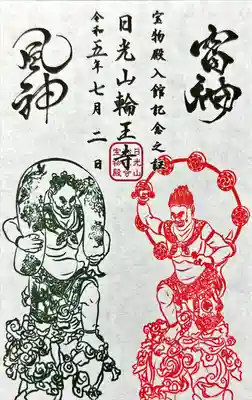 雷神
宝物殿入館記念之証
日光山輪王寺
日光山
輪王寺
宝物殿
令和五年七月二日
風神